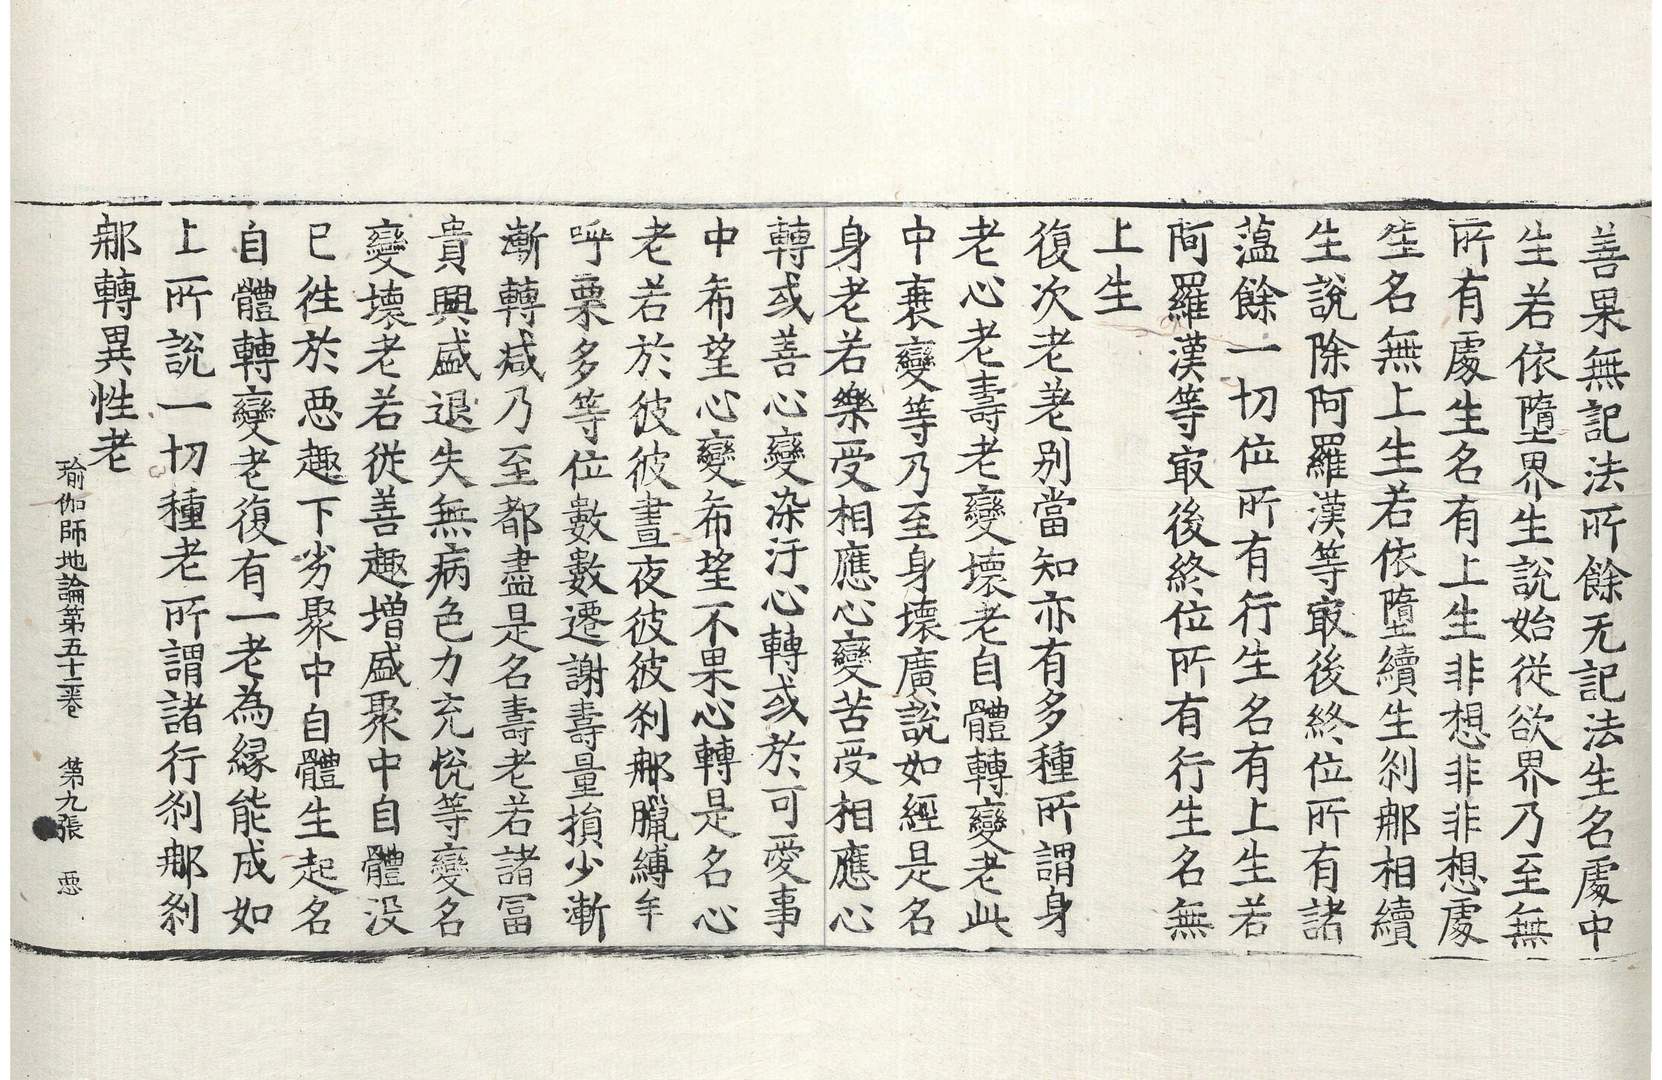 善果無記法所餘无記法生名處中
生若依墮界生說始從欲界乃至無
所有處生名有上生非想非非想處
生名無上生若依墮續生刹那相續
生說除阿羅漢等㝡後終位所有諸
薀餘一切位所有行生名有上生若
阿羅漢等㝡後終位所有行生名無
上生
復次老差別當知亦有多種所謂身
老心老壽老變壞老自體轉變老此
中衰變等乃至身壞廣說如經是名
身老若樂受相應心變苦受相應心
轉或善心變染汙心轉或於可愛事
中希望心變希望不果心轉是名心
老若於彼彼晝夜彼彼刹那臘縛牟
呼栗多等位數數遷謝壽量損少漸
漸轉減乃至都盡是名壽老若諸冨
貴興盛退失無病色力充悅等變名
變壞老若從善趣增盛聚中自體没
已徃於惡趣下劣聚中自體生起名
自體轉變老復有一老為縁能成如
上所說一切種老所謂諸行刹那刹
那轉異性老
瑜伽師地論第五十二卷 第九張 惡